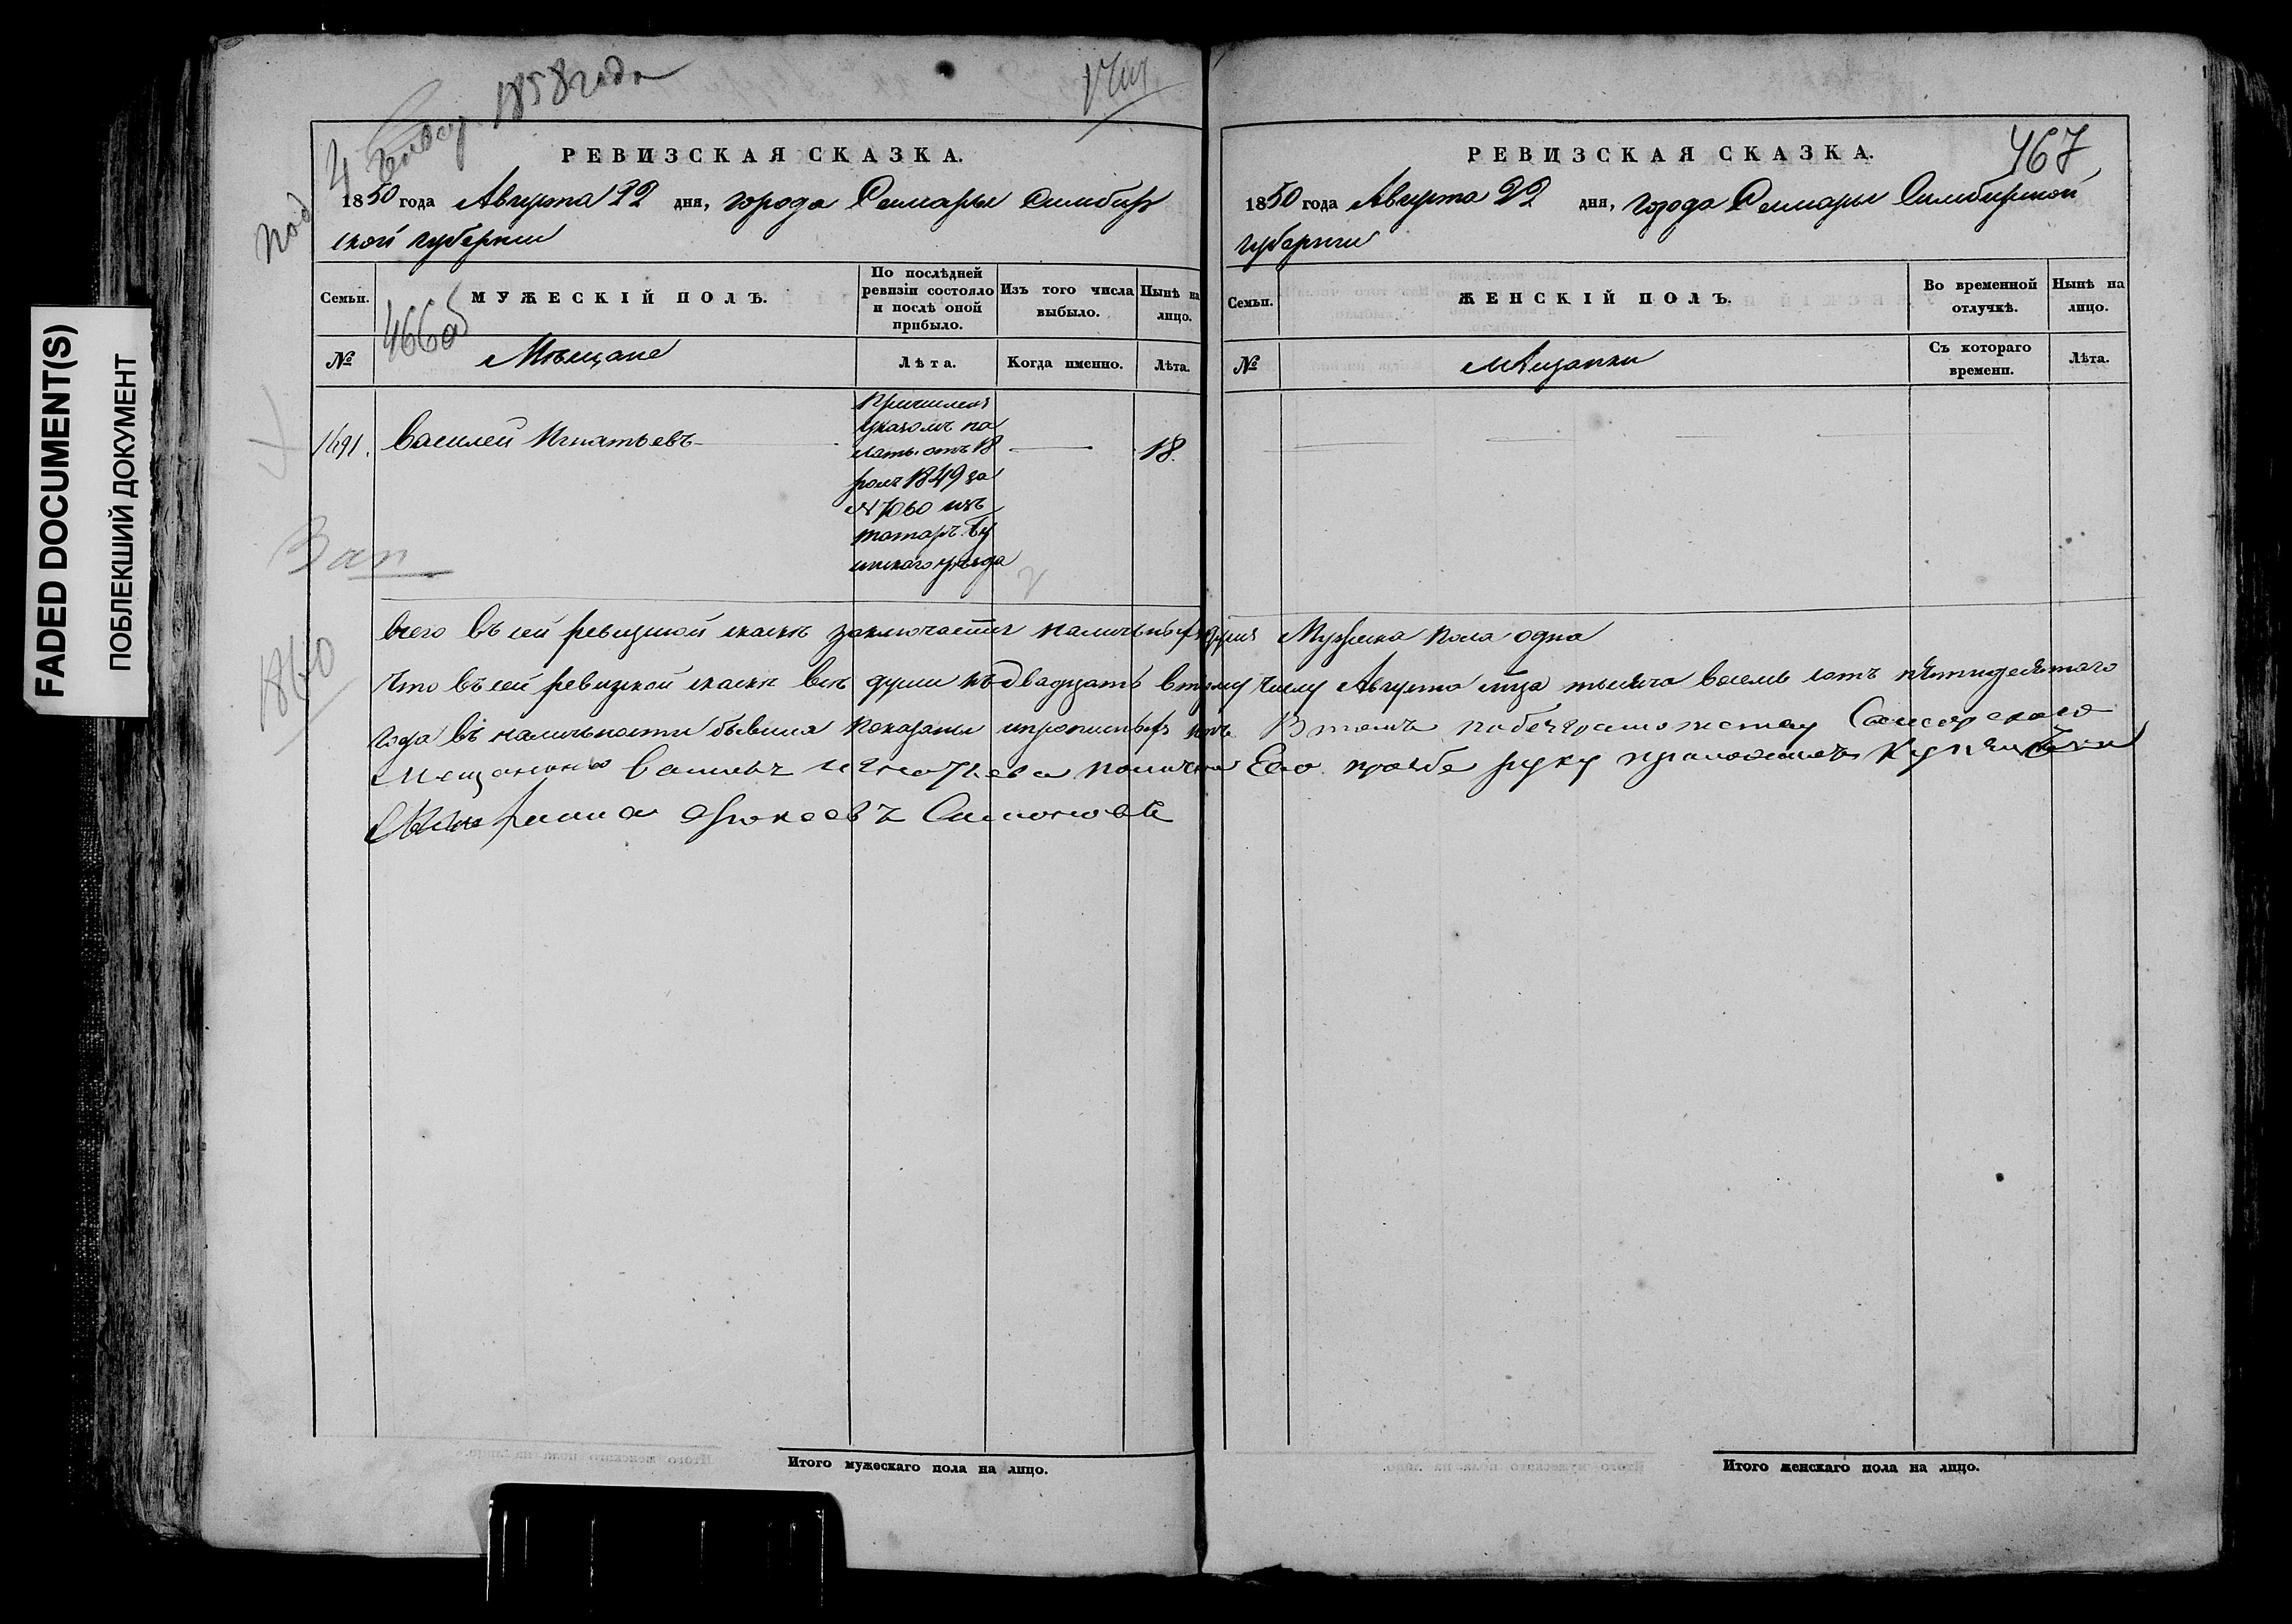 FADED DOCUMENT(S)
ПОБЛЕКШИЙ ДОКУМЕНТ
1858 года
под
РЕВИЗСКАЯ СКАЗКА.
1850 года Августа 22 дня, города Самары Симбир
ской губернии
Семьи.
МУЖЕСКІЙ ПОЛЪ.
По послѣдней ревизіи состояло и послѣ оной прибыло.
Изъ того числа выбыло.
Нынѣ на лицо.
466об
№
Мѣщане
Лѣта.
Когда именно.
Лѣта.
1691.
Василей Игнатьевъ
18.
Причисленъ
указомъ па
латы отъ 18
1849 за
№ 7060 изъ
татаръ Бу
инскаго уѣзда
Зап
1860
Всего въ сей ревизской сказкѣ заключается наличныхъ душъ
Что въ сей ревизской сказкѣ всѣ души къ двадцать второму
года въ наличности бывшия показаны и прописныхъ нѣтъ
Мещанина Василья Игнатьева
Итого мужескаго пола на лицо.
РЕВИЗСКАЯ СКАЗКА.
467
1850 года Августа 22 дня, города Самары Симбирской
губернии
Семьи.
ЖЕНСКІЙ ПОЛЪ.
Во временной отлучкѣ.
Нынѣ на лицо.
№
Мѣщанки
Съ котораго времени.
Лѣта.
Мужеска пола одна
числу Августа мца тысяча восемь сотъ пятидесятаго
В томъ Самарскаго
Его прозбе руку приложилъ
Итого женскаго пола на лицо.